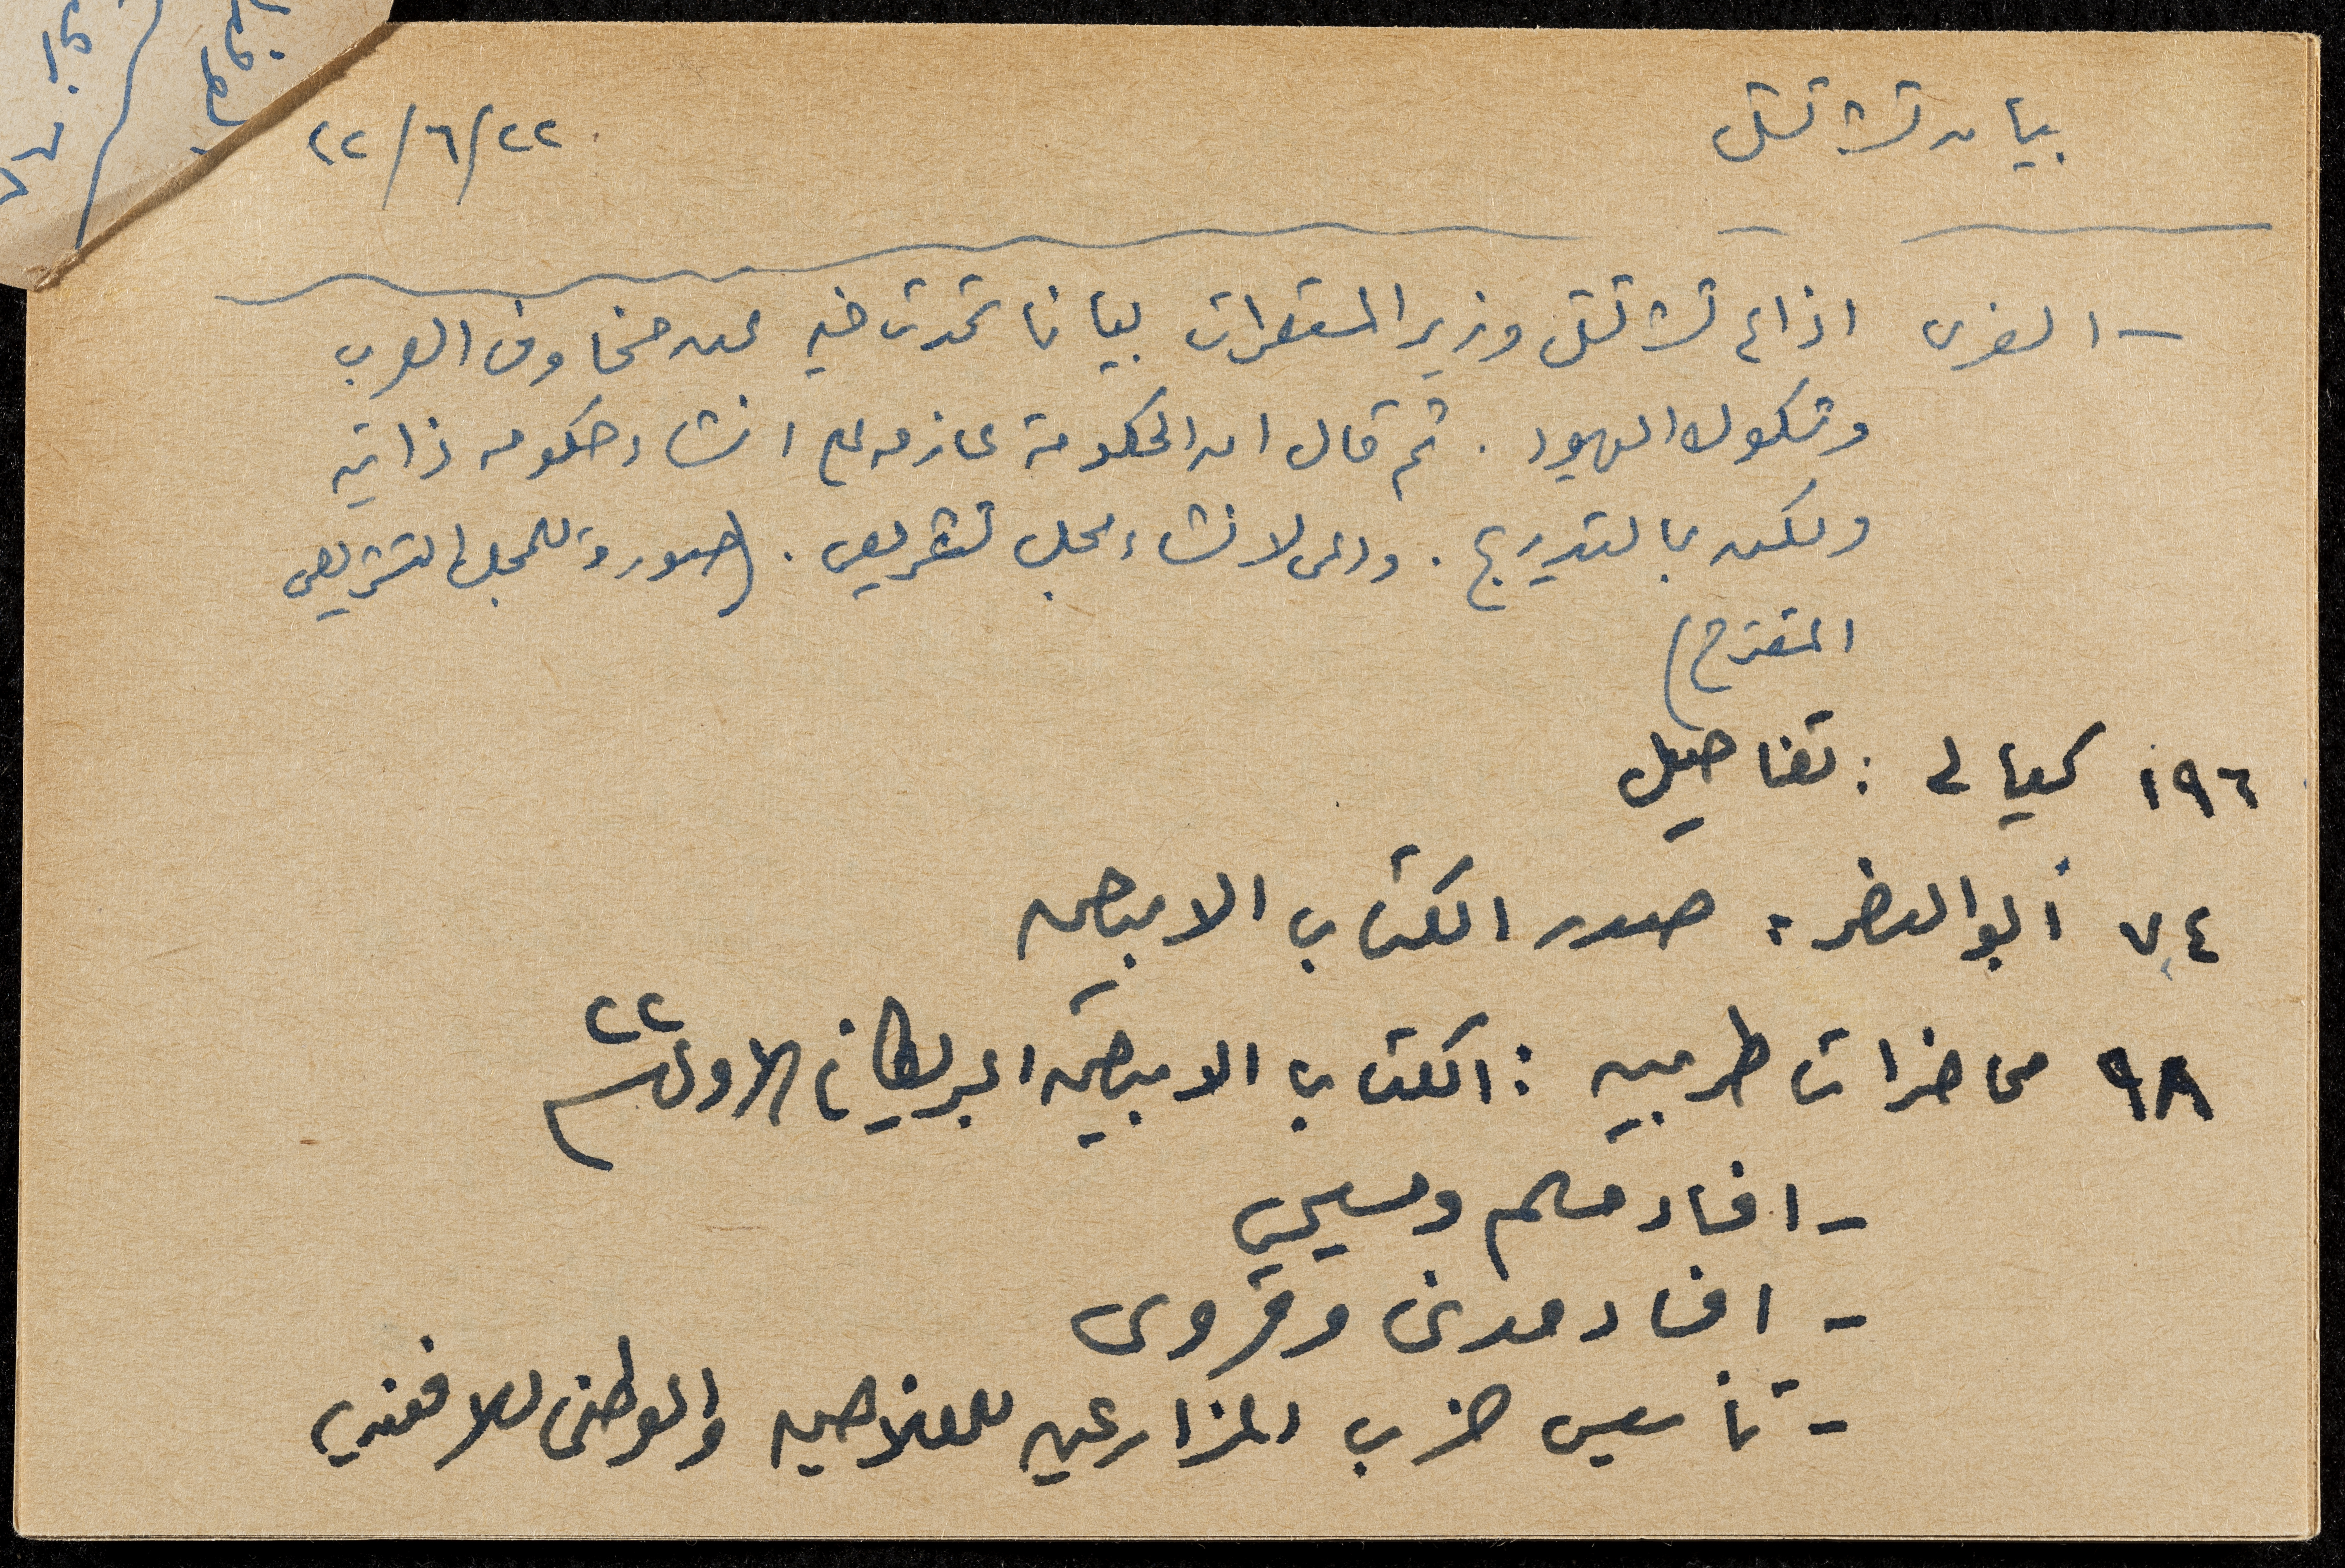 بيان تشرتشل
٢٢/٦/٢٢
- الغزى اذاع تشرتشل وزير المستعمرات بيانا تحدث فيه عن مخاوف العرب
وشكوك اليهود . ثم قال ان الحكومة عازمه على انشاء حكومه ذاتيه
ولكن بالتدريج . ودعى لانشاء مجلس تشريعى . (صورة للمجلس التشريعى
المقترح)
١٩٦ كيالى : تفاصيل
٧٤ أبو النضر : صدر الكتاب الابيض
٩٨ محاضرات طربين : الكتاب الابيض البريطانى الاول ٢٢
- افساد مسلم ومسيحي
- افساد مدنى وقروى
- تأسيس حزب المزارعين للفلاحين والوطنى للافندية